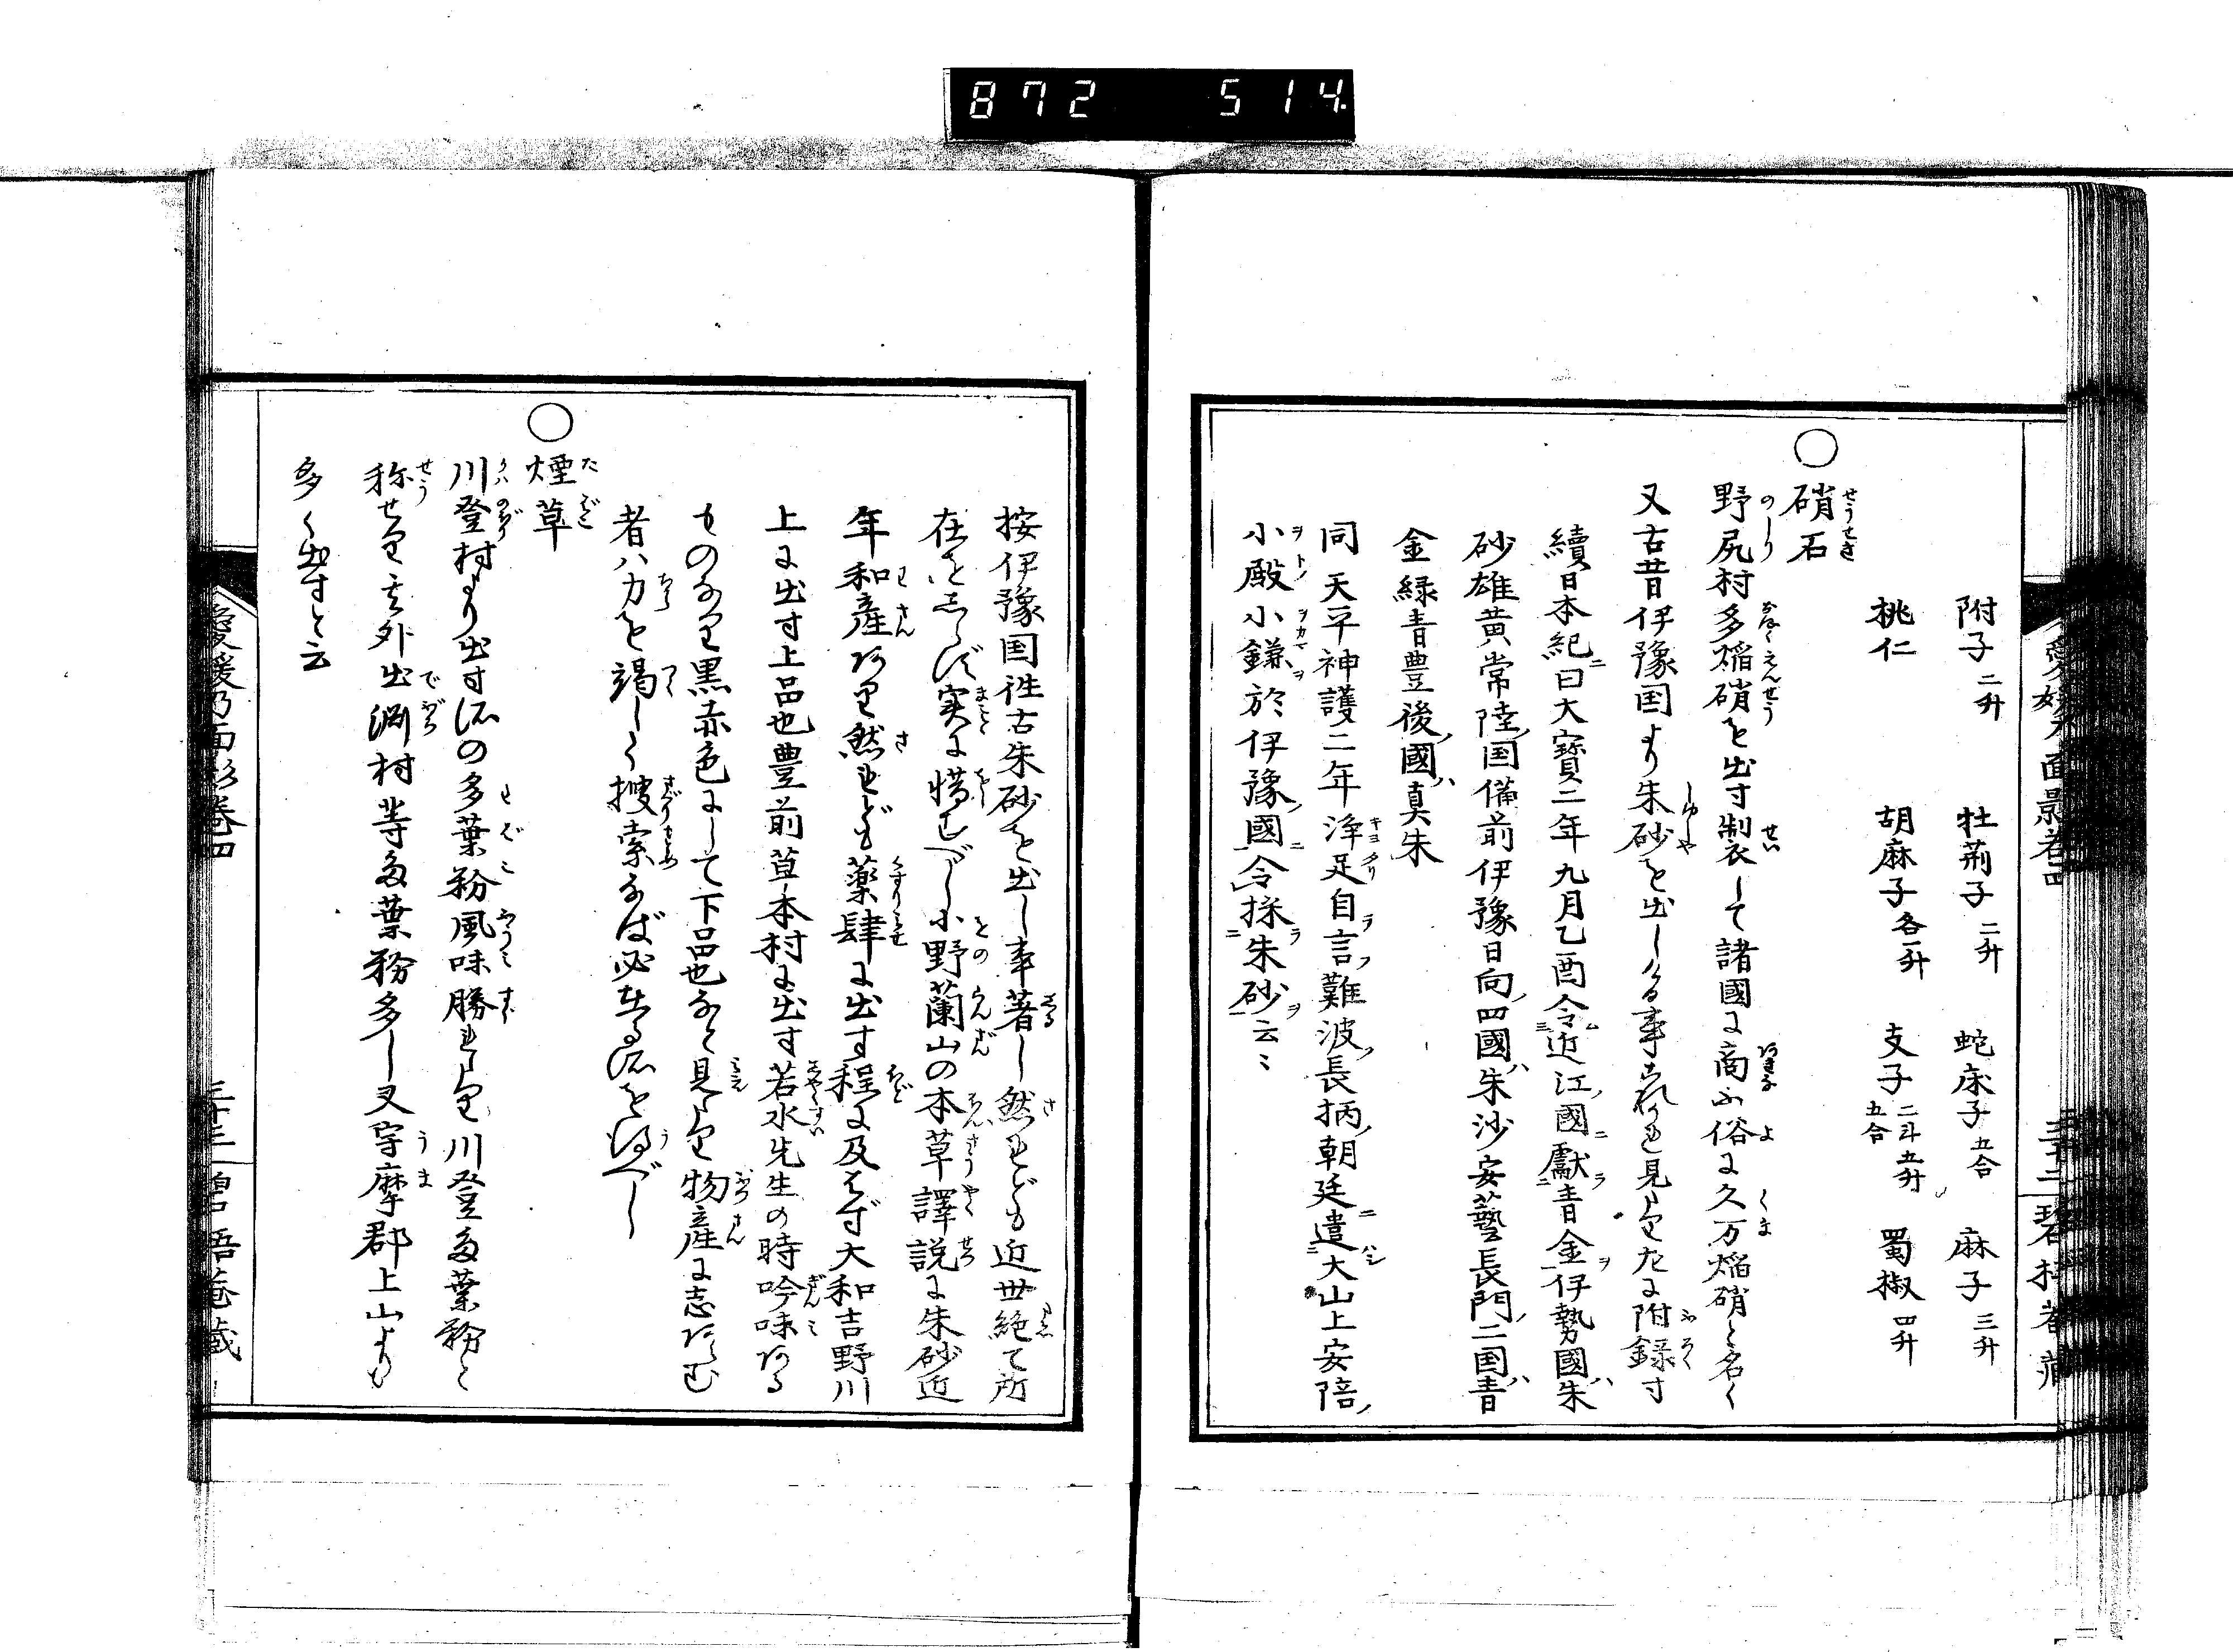 872 514
愛媛乃面影巻四
附子二升 牡荊子二升 蛇床子五合 麻子三升
桃仁 胡麻子各一升 支子二斗五升五合 蜀椒四升
○硝石
野尻村多焔硝を出す製して諸國に商ふ俗に久万焔硝と名く
又古昔伊豫国より朱砂を出しゝ事これかれ見えたり左に附録す
續日本紀曰大寶二年九月乙酉令近江國献青金伊勢國朱
砂雄黄常陸国備前伊豫日向四國朱沙安藝長門二国青
金緑青豊後國真朱
同天平神護二年浄足自言難波長柄朝廷遣大山上安陪
小殿小鎌於伊豫國令採朱砂云〻
按伊豫国往古朱砂を出し事著し然れども近世絶て所
在をしらず実に惜むべし小野蘭山の本草譯説に朱砂近
年和産あり然れども薬肆に出す程に及ばず大和吉野川
上に出す上品也豊前草本村に出す若水先生の時吟味ある
ものなり黒赤色にして下品也など見えたり物産に志あらむ
者ハ力を竭して捜索なば必出る所を得べし
○煙草
川登村より出す所の多葉粉風味勝れたり川登多葉粉と
称せり其外出渕村等多葉粉多し又宇摩郡上山よりも
多く出すと云
愛媛乃面影巻四 三十三 碧梧菴蔵